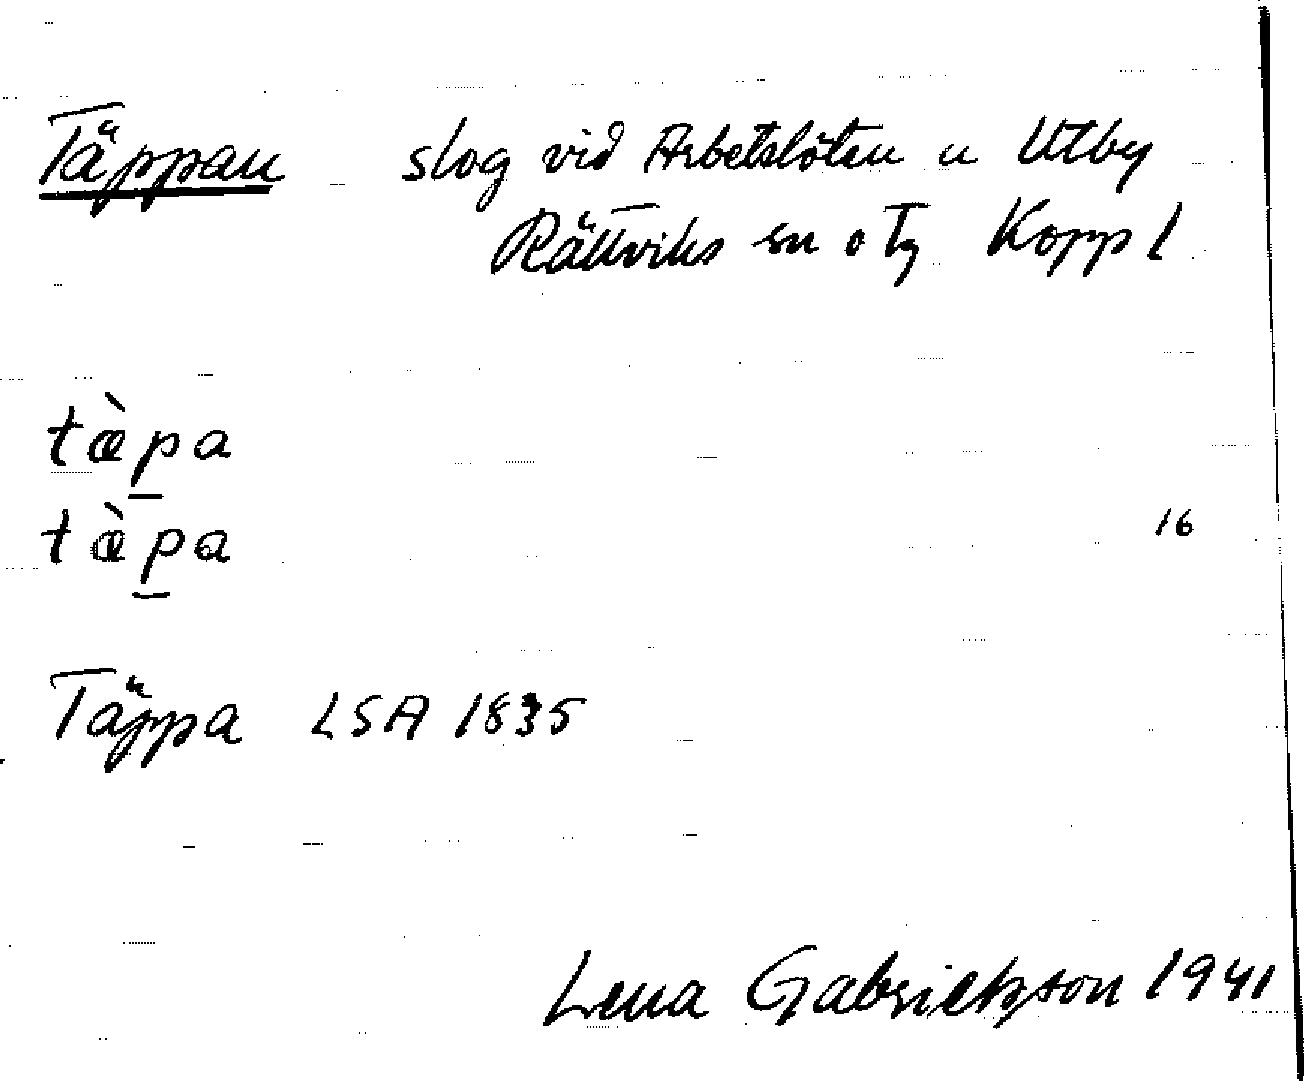 Täppan slog vid Arbetslöten u Utby
Rättviks sn o tg Kopp l
tæ̀p̠a
tæ̀p̠a
16
Täppa LSA 1835
Lena Gabrielsson 1941